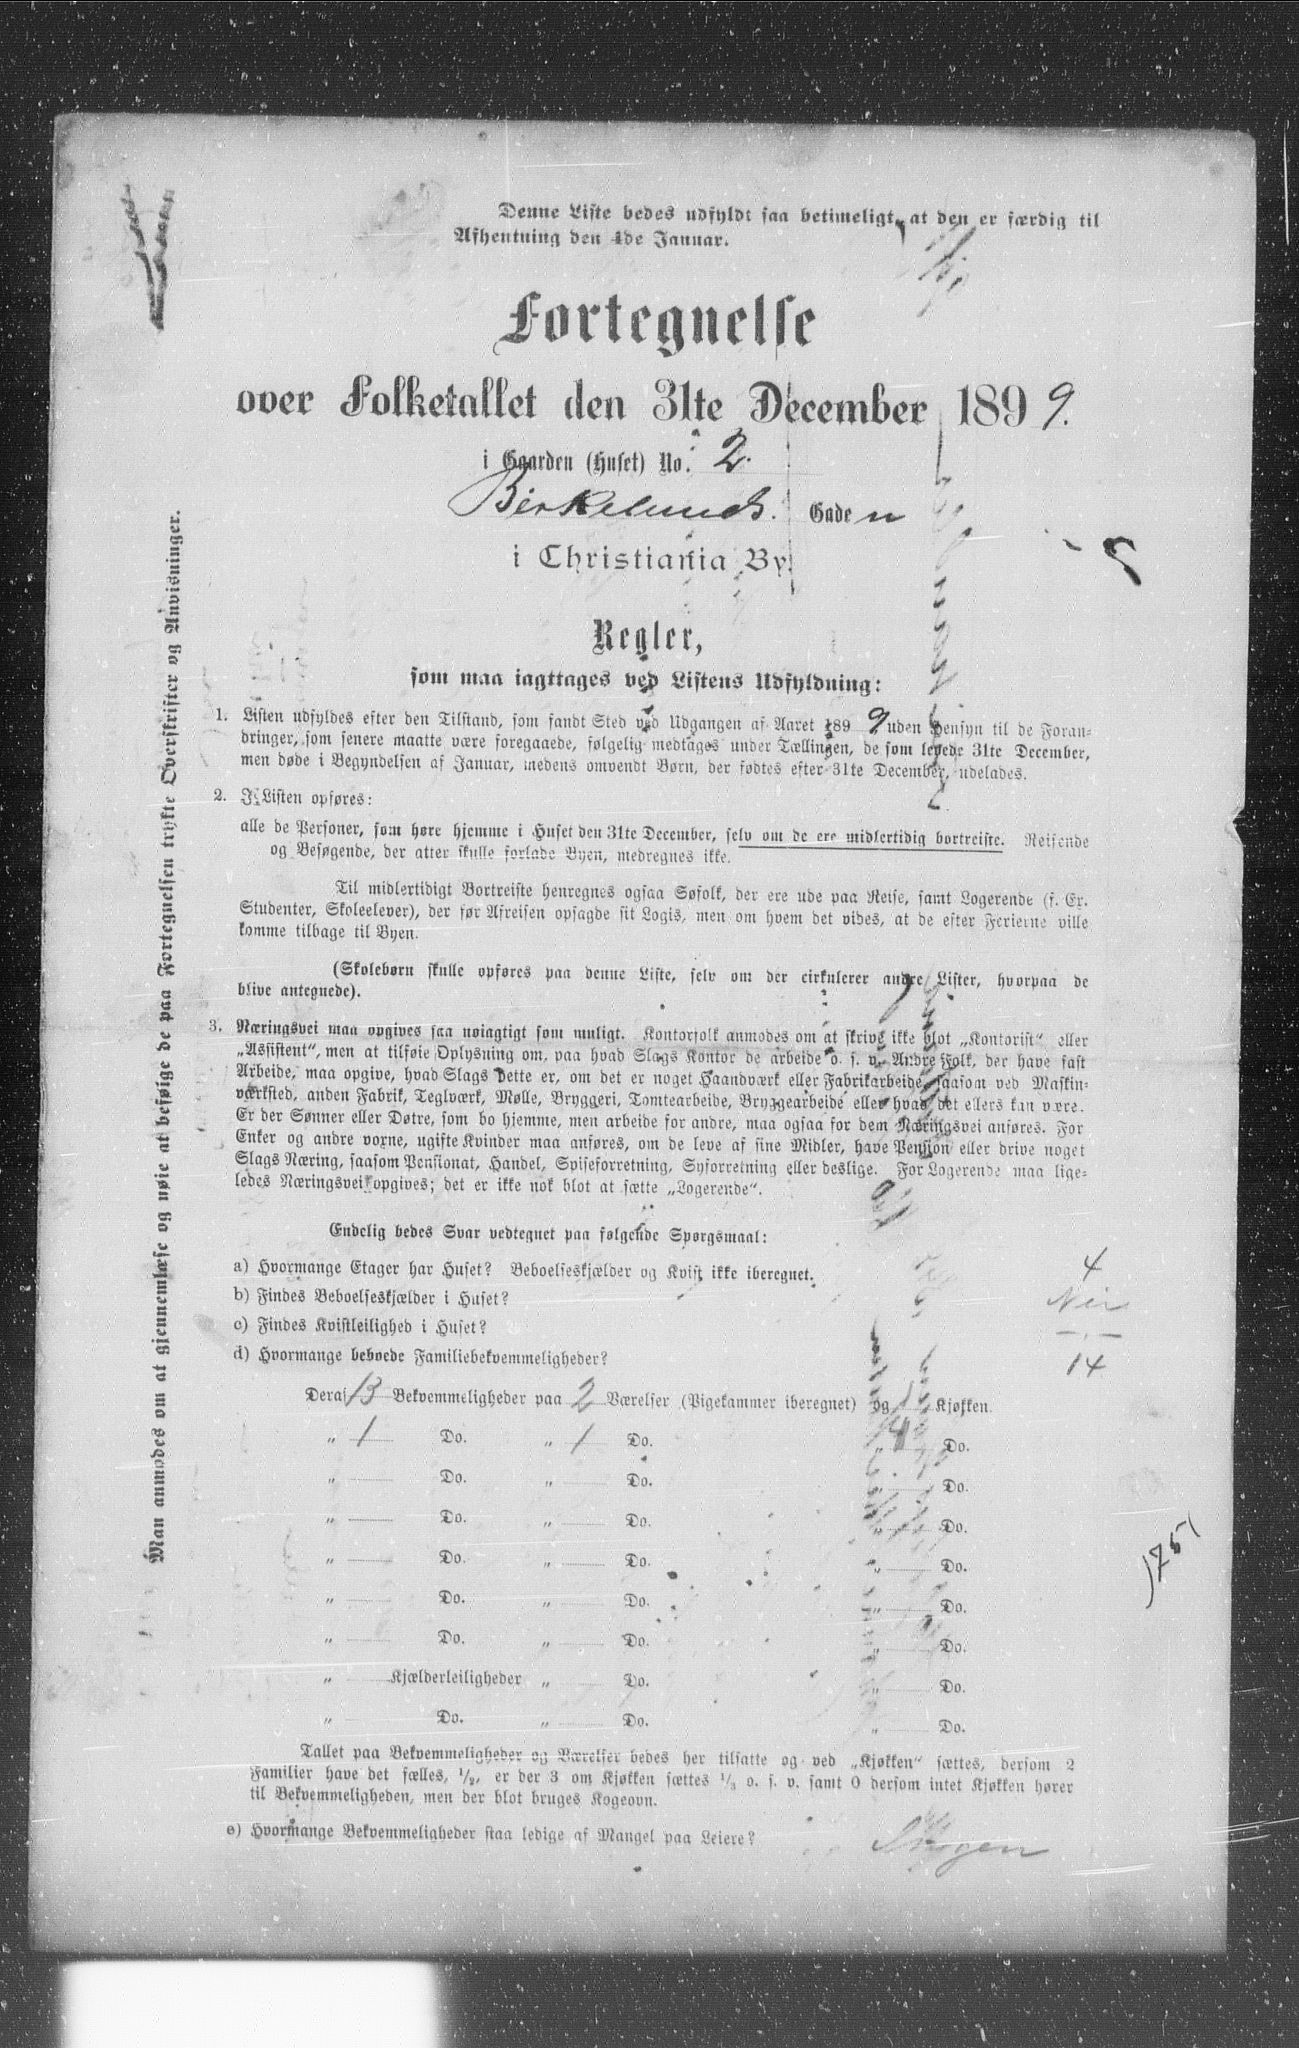 Denne Liste bedes udfyldt saa betimeligt, at den er færdig til
Afhentning den 4de Januar.
Fortegnelse
over Folketallet den 31te December 1899.
i Gaarden (Huset) No. 2.
Birkelunds. Gade n
i Christiania By.
Regler,
som maa iagttages ved Listens Udfyldning:
1. Listen udfyldes efter den Tilstand, som fandt Sted ved Udgangen af Aaret 1899 uden Hensyn til de Foran-
dringer, som senere maatte være foregaaede, følgelig medtages under Tællingen, de som levede 31te December,
men døde i Begyndelsen af Januar, medens omvendt Børn, der fødtes efter 31te December, udelades.
2. I Listen opføres:
alle de Personer, som høre hjemme i Huset den 31te December, selv om de ere midlertidig bortreiste. Reisende
og Besøgende, der atter skulle forlade Byen, medregnes ikke.
Til midlertidigt Bortreiste henregnes ogsaa Søfolk, der ere ude paa Reise, samt Logerende (f. Ex.
Studenter, Skoleelever), der før Afreisen opsagde sit Logis, men om hvem det vides, at de efter Ferierne ville
komme tilbage til Byen.
(Skolebørn skulle opføres paa denne Liste, selv om der cirkulerer andre Lister, hvorpaa de
blive antegnede).
3. Næringsvei maa opgives saa nøiagtigt som muligt. Kontorfolk anmodes om at skrive ikke blot „Kontorist“ eller
„Assistent“, men at tilføie Oplysning om, paa hvad Slags Kontor de arbeide o. s. v. Andre Folk, der have fast
Arbeide, maa opgive, hvad Slags dette er, om det er noget Haandværk eller Fabrikarbeide, saasom ved Maskin-
værksted, anden Fabrik, Teglværk, Mølle, Bryggeri, Tomtearbeide, Bryggearbeide eller hvad det ellers kan være.
Er der Sønner eller Døtre, som bo hjemme, men arbeide for andre, maa ogsaa for dem Næringsvei anføres. For
Enker og andre voxne, ugifte Kvinder maa anføres, om de leve af sine Midler, have Pension eller drive noget
Slags Næring, saasom Pensionat, Handel, Spiseforretning, Syforretning eller deslige. For Logerende maa lige-
ledes Næringsvei opgives; det er ikke nok blot at sætte „Logerende“.
Endelig bedes Svar vedtegnet paa følgende Spørgsmaal:
a) Hvormange Etager har Huset? Beboelseskjælder og Kvist ikke iberegnet. 4
b) Findes Beboelseskjælder i Huset? Nei
c) Findes Kvistleilighed i Huset? —
d) Hvormange beboede Familiebekvemmeligheder? 14
Deraf 13 Bekvemmeligheder paa 2 Værelser (Pigekammer iberegnet) og 1 Kjøkken.
„ 1 Do. „ 1 Do. „ Do.
„ Do. „ Do. „ Do.
„ Do. „ Do. „ Do.
„ Do. „ Do. „ Do.
„ Do. „ Do. „ Do.
„ Do. „ Do. „ Do.
„ Kjælderleiligheder „ Do. „ Do.
„ Do. „ Do. „ Do.
Tallet paa Bekvemmeligheder og Værelser bedes her tilsatte og ved „Kjøkken“ sættes, dersom 2
Familier have det fælles, 1/2, er der 3 om Kjøkken sættes 1/3 o. s. v. samt 0 dersom intet Kjøkken hører
til Bekvemmeligheden, men der blot bruges Kogeovn.
e) Hvormange Bekvemmeligheder staa ledige af Mangel paa Leiere? Ingen
Man anmodes om at gjennemlæse og nøie at besøige de paa Fortegnelsen trykte Overskrifter og Anvisninger.